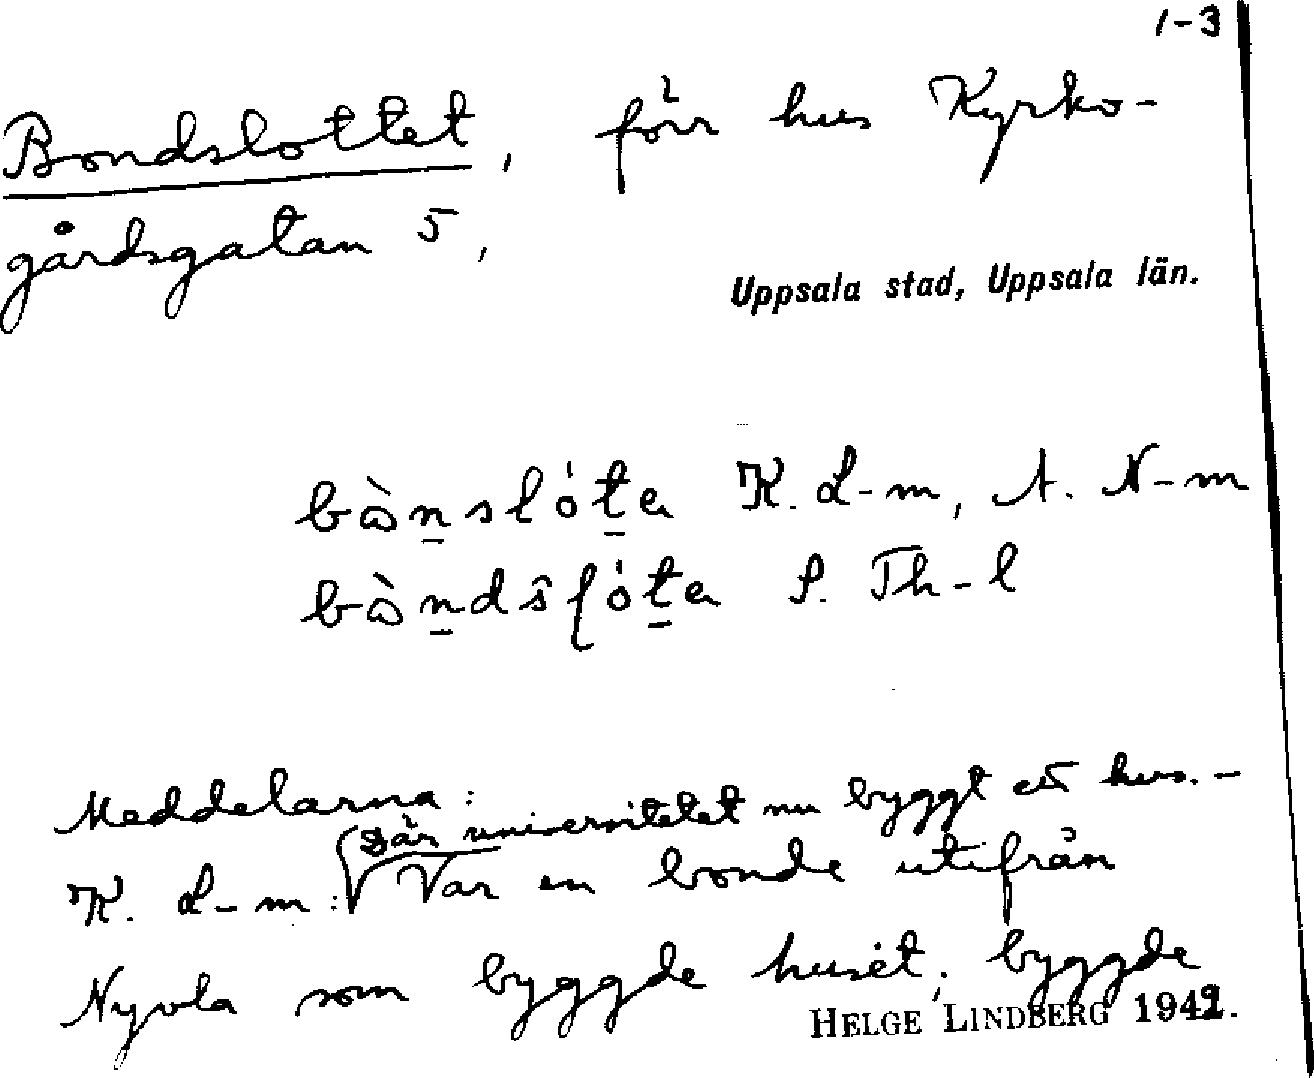 1-3
Bondslottet, förr hus Kyrko-
gårdsgatan 5,
Uppsala stad, Uppsala län.
K. L-m, A. N-m
P. Th-l
Meddelarna:
Där universitetet nu byggt ett hus. -
K. L-m: Var en bonde utifrån
Nyvla som byggde huset, byggde
HELGE LINDBERG 1942.